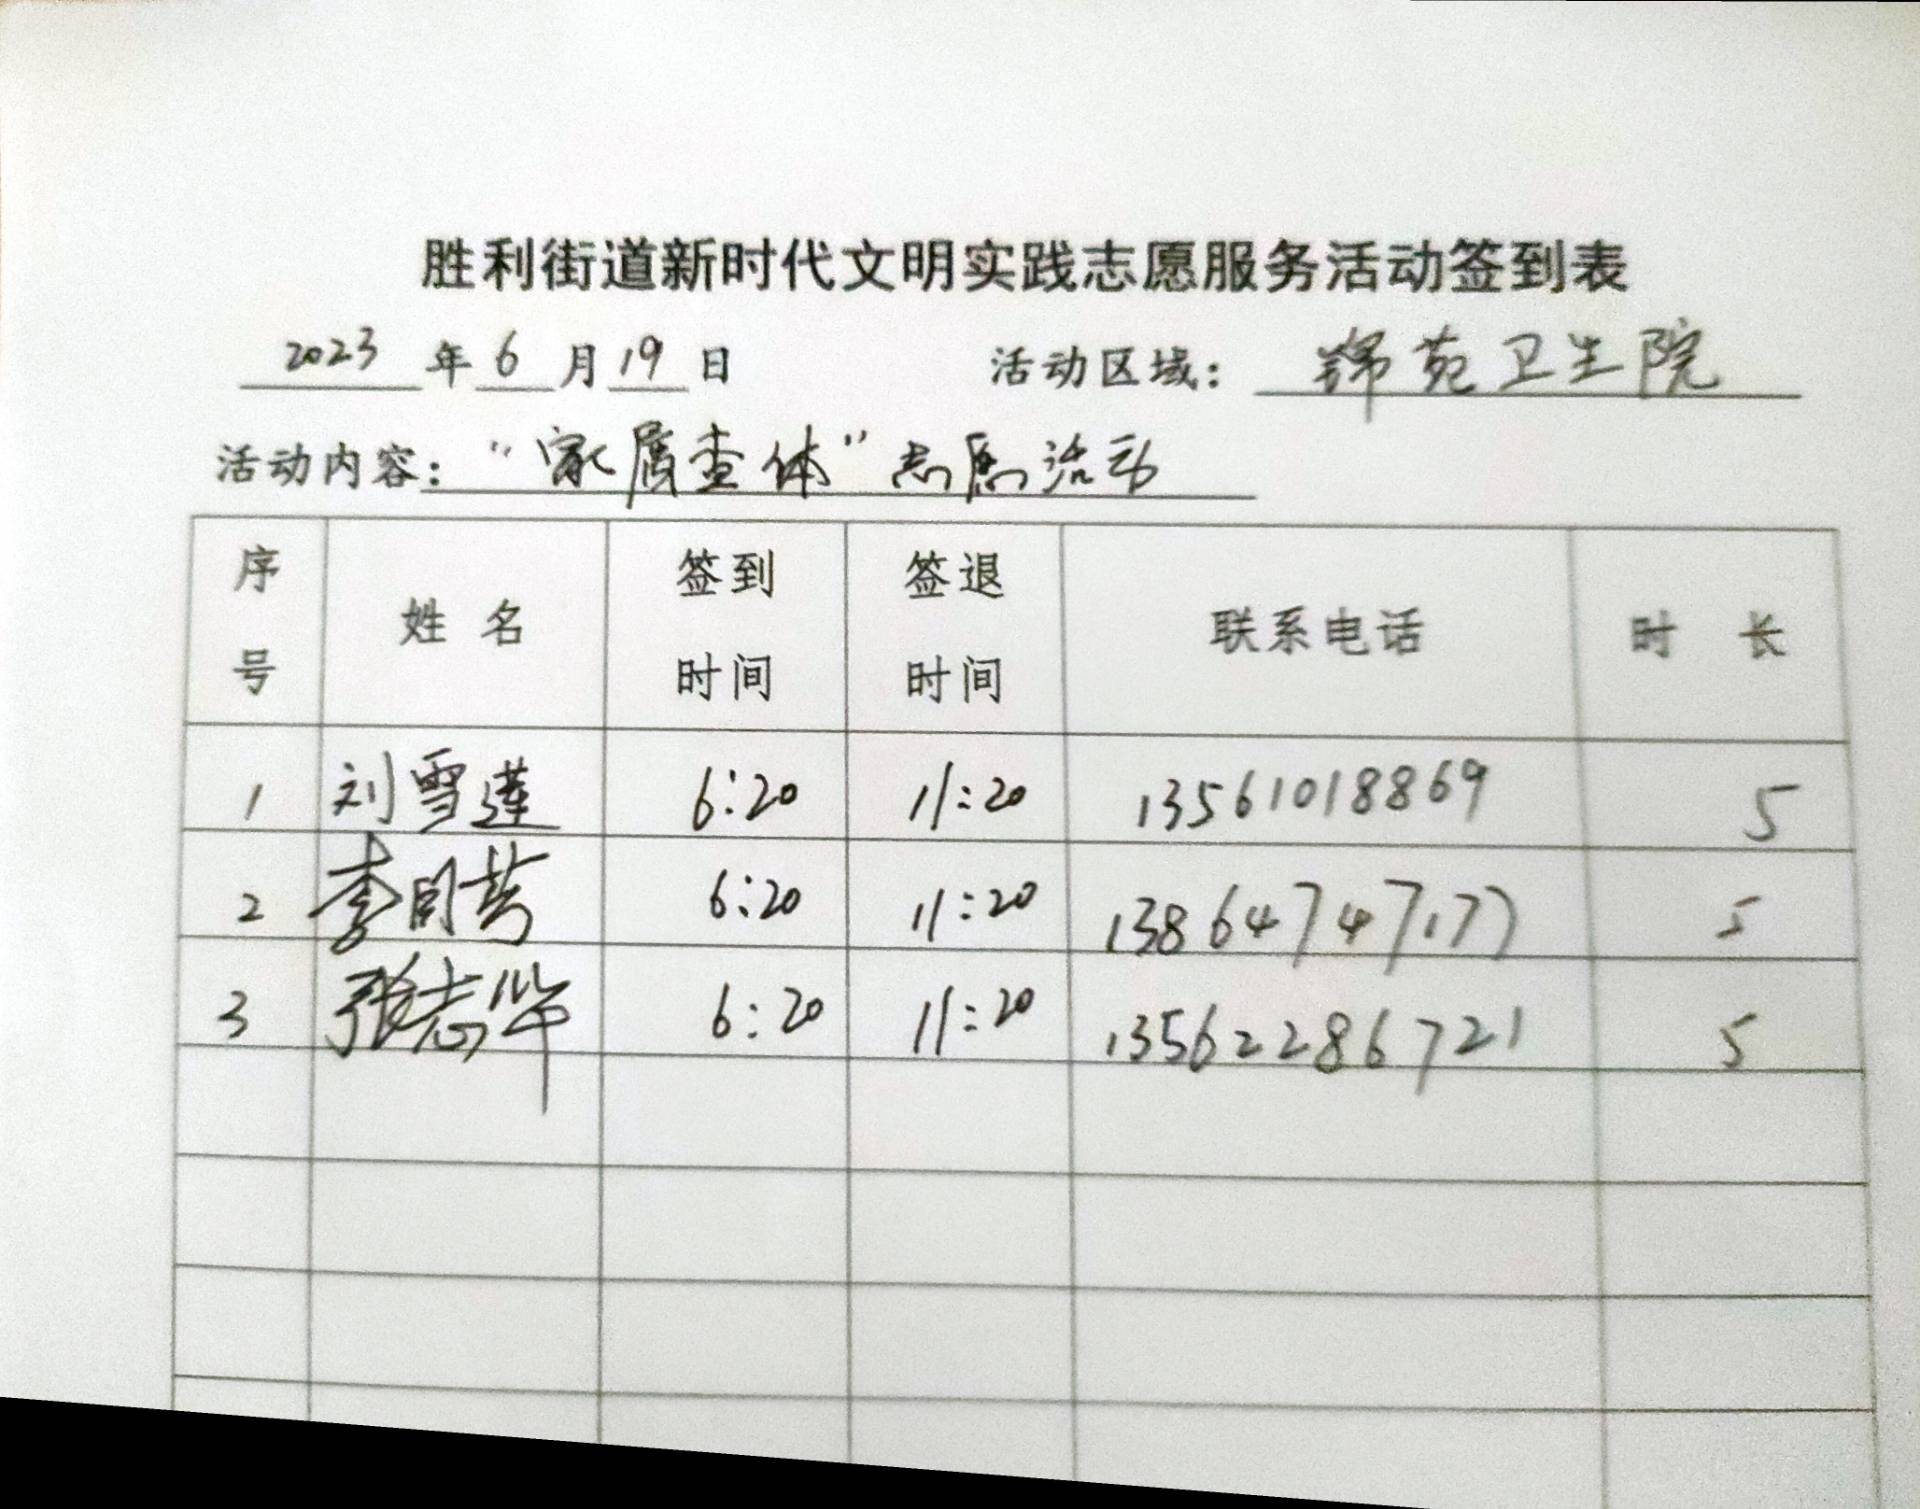 胜利街道新时代文明实践志愿服务活动签到表
2023 年 6 月 19 日 活动区域： 锦苑卫生院
活动内容： “家属查体”志愿活动
序号 姓名 签到时间 签退时间 联系电话 时长
1 刘雪莲 6:20 11:20 13561018869 5
2 李月芳 6:20 11:20 13864747177 5
3 张志华 6:20 11:20 13562286721 5